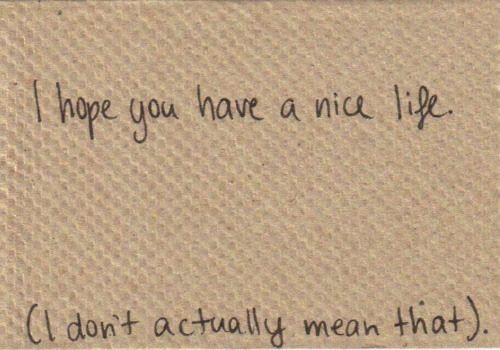 I hope you have a nice life.
(I don't actually mean that).